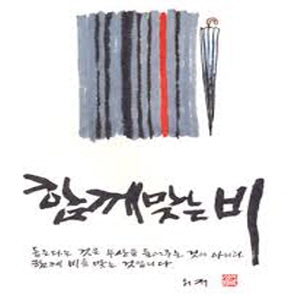 함께맞는비
돕는다는 것은 우산을 들어주는 것이 아니라
함께 비를 맞는 것입니다.
쇠귀